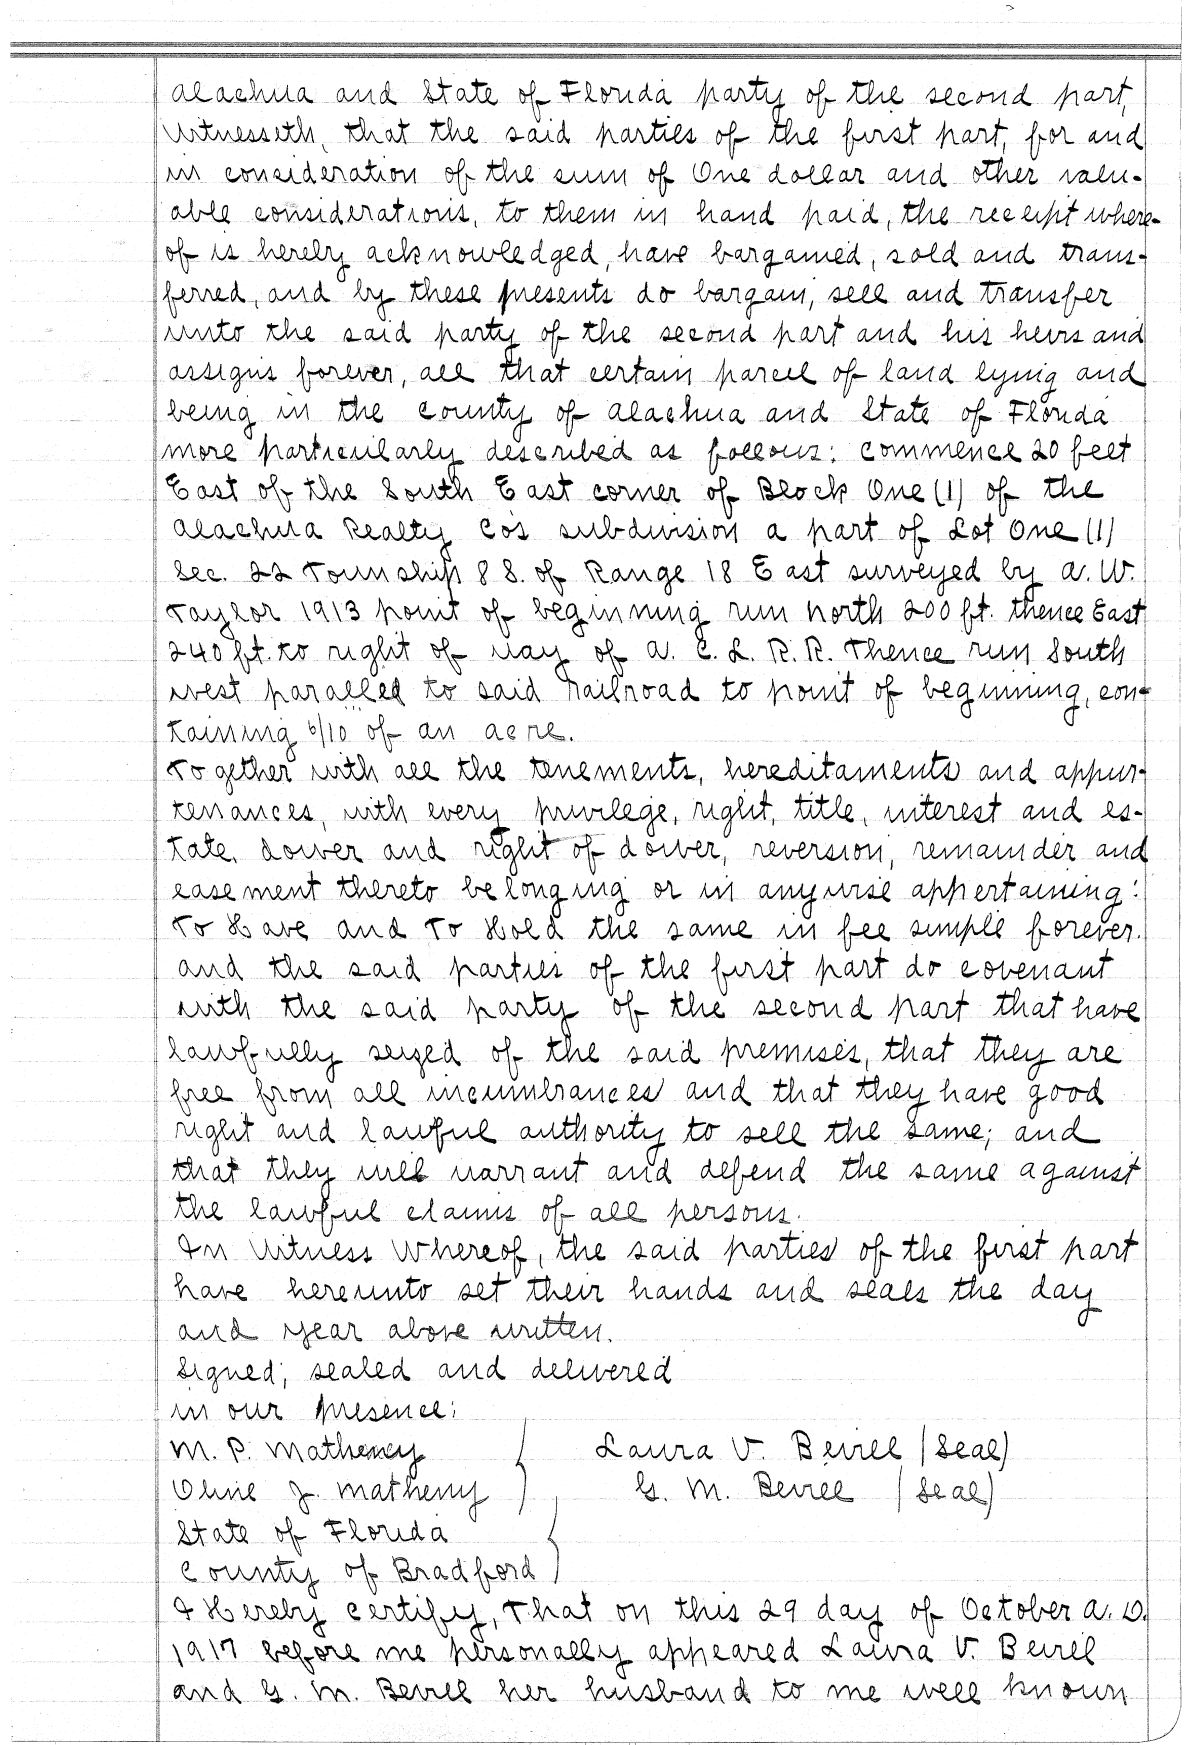 Alachua and State of Florida party of the second part,
Witnesseth, that the said parties of the first part, for and
in consideration of the sum of One dollar and other valu-
able considerations, to them in hand paid, the receipt where-
of is hereby acknowledged, have bargained, sold and trans-
ferred, and by these presents do bargain, sell and transfer
unto the said party of the second part and his heirs and
assigns forever, all that certain parcel of land lying and
being in the County of Alachua and State of Florida
more particularly described as follows: Commence 20 feet
East of the South East corner of Block One (1) of the
Alachua Realty Co's subdivision a part of Lot One (1)
Sec. 22 Township 8 S. of Range 18 East surveyed by A. W.
Taylor 1913 point of beginning run North 200 ft. thence East
240 ft. to right of way of A. C. L. R. R. Thence run South
west paralled to said railroad to point of beginning, con-
taining 6/10 of an acre.
Together with all the tenements, hereditaments and appur-
tenances, with every privilege, right, title, interest and es-
tate, dower and right of dower, reversion, remainder and
easement thereto belonging or in anywise appertaining:
To Have and To Hold the same in fee simple forever.
And the said parties of the first part do covenant
with the said party of the second part that have
lawfully seized of the said premises, that they are
free from all incumbrances and that they have good
right and lawful authority to sell the same; and
that they will warrant and defend the same against
the lawful claims of all persons.
In Witness Whereof, the said parties of the first part
have hereunto set their hands and seals the day
and year above written.
Signed, sealed and delivered
in our presence:
M. P. Matheney } Laura V. Bevill (Seal)
Olive J. Matheny G. M. Bevill (Seal)
State of Florida
County of Bradford }
I Hereby Certify, That on this 29 day of October A. D.
1917 before me personally appeared Laura V. Bevill
and G. M. Bevill her husband to me well known